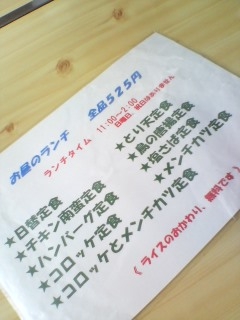 お昼のランチ 全品525円
ランチタイム 11:00〜2:00
日曜日、祝日は
★日替定食
★チキン南蛮定食
★ハンバーグ定食
★コロッケ定食
★コロッケとメンチカツ定食
★とり天定食
★鳥の唐揚定食
★塩さば定食
★メンチカツ定食
(ライスのおかわり、無料です)